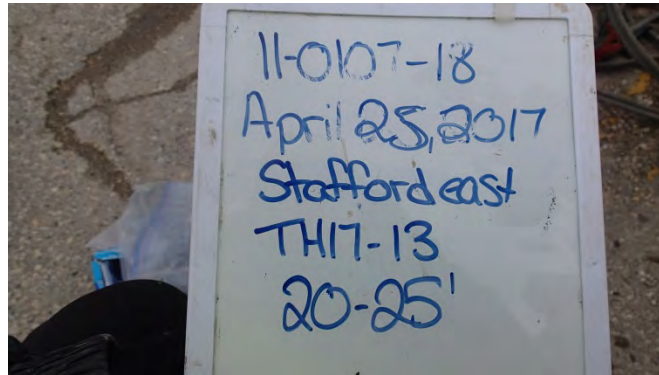 11-0107-18
April 25, 2017
Stafford east
TH17-13
20-25'